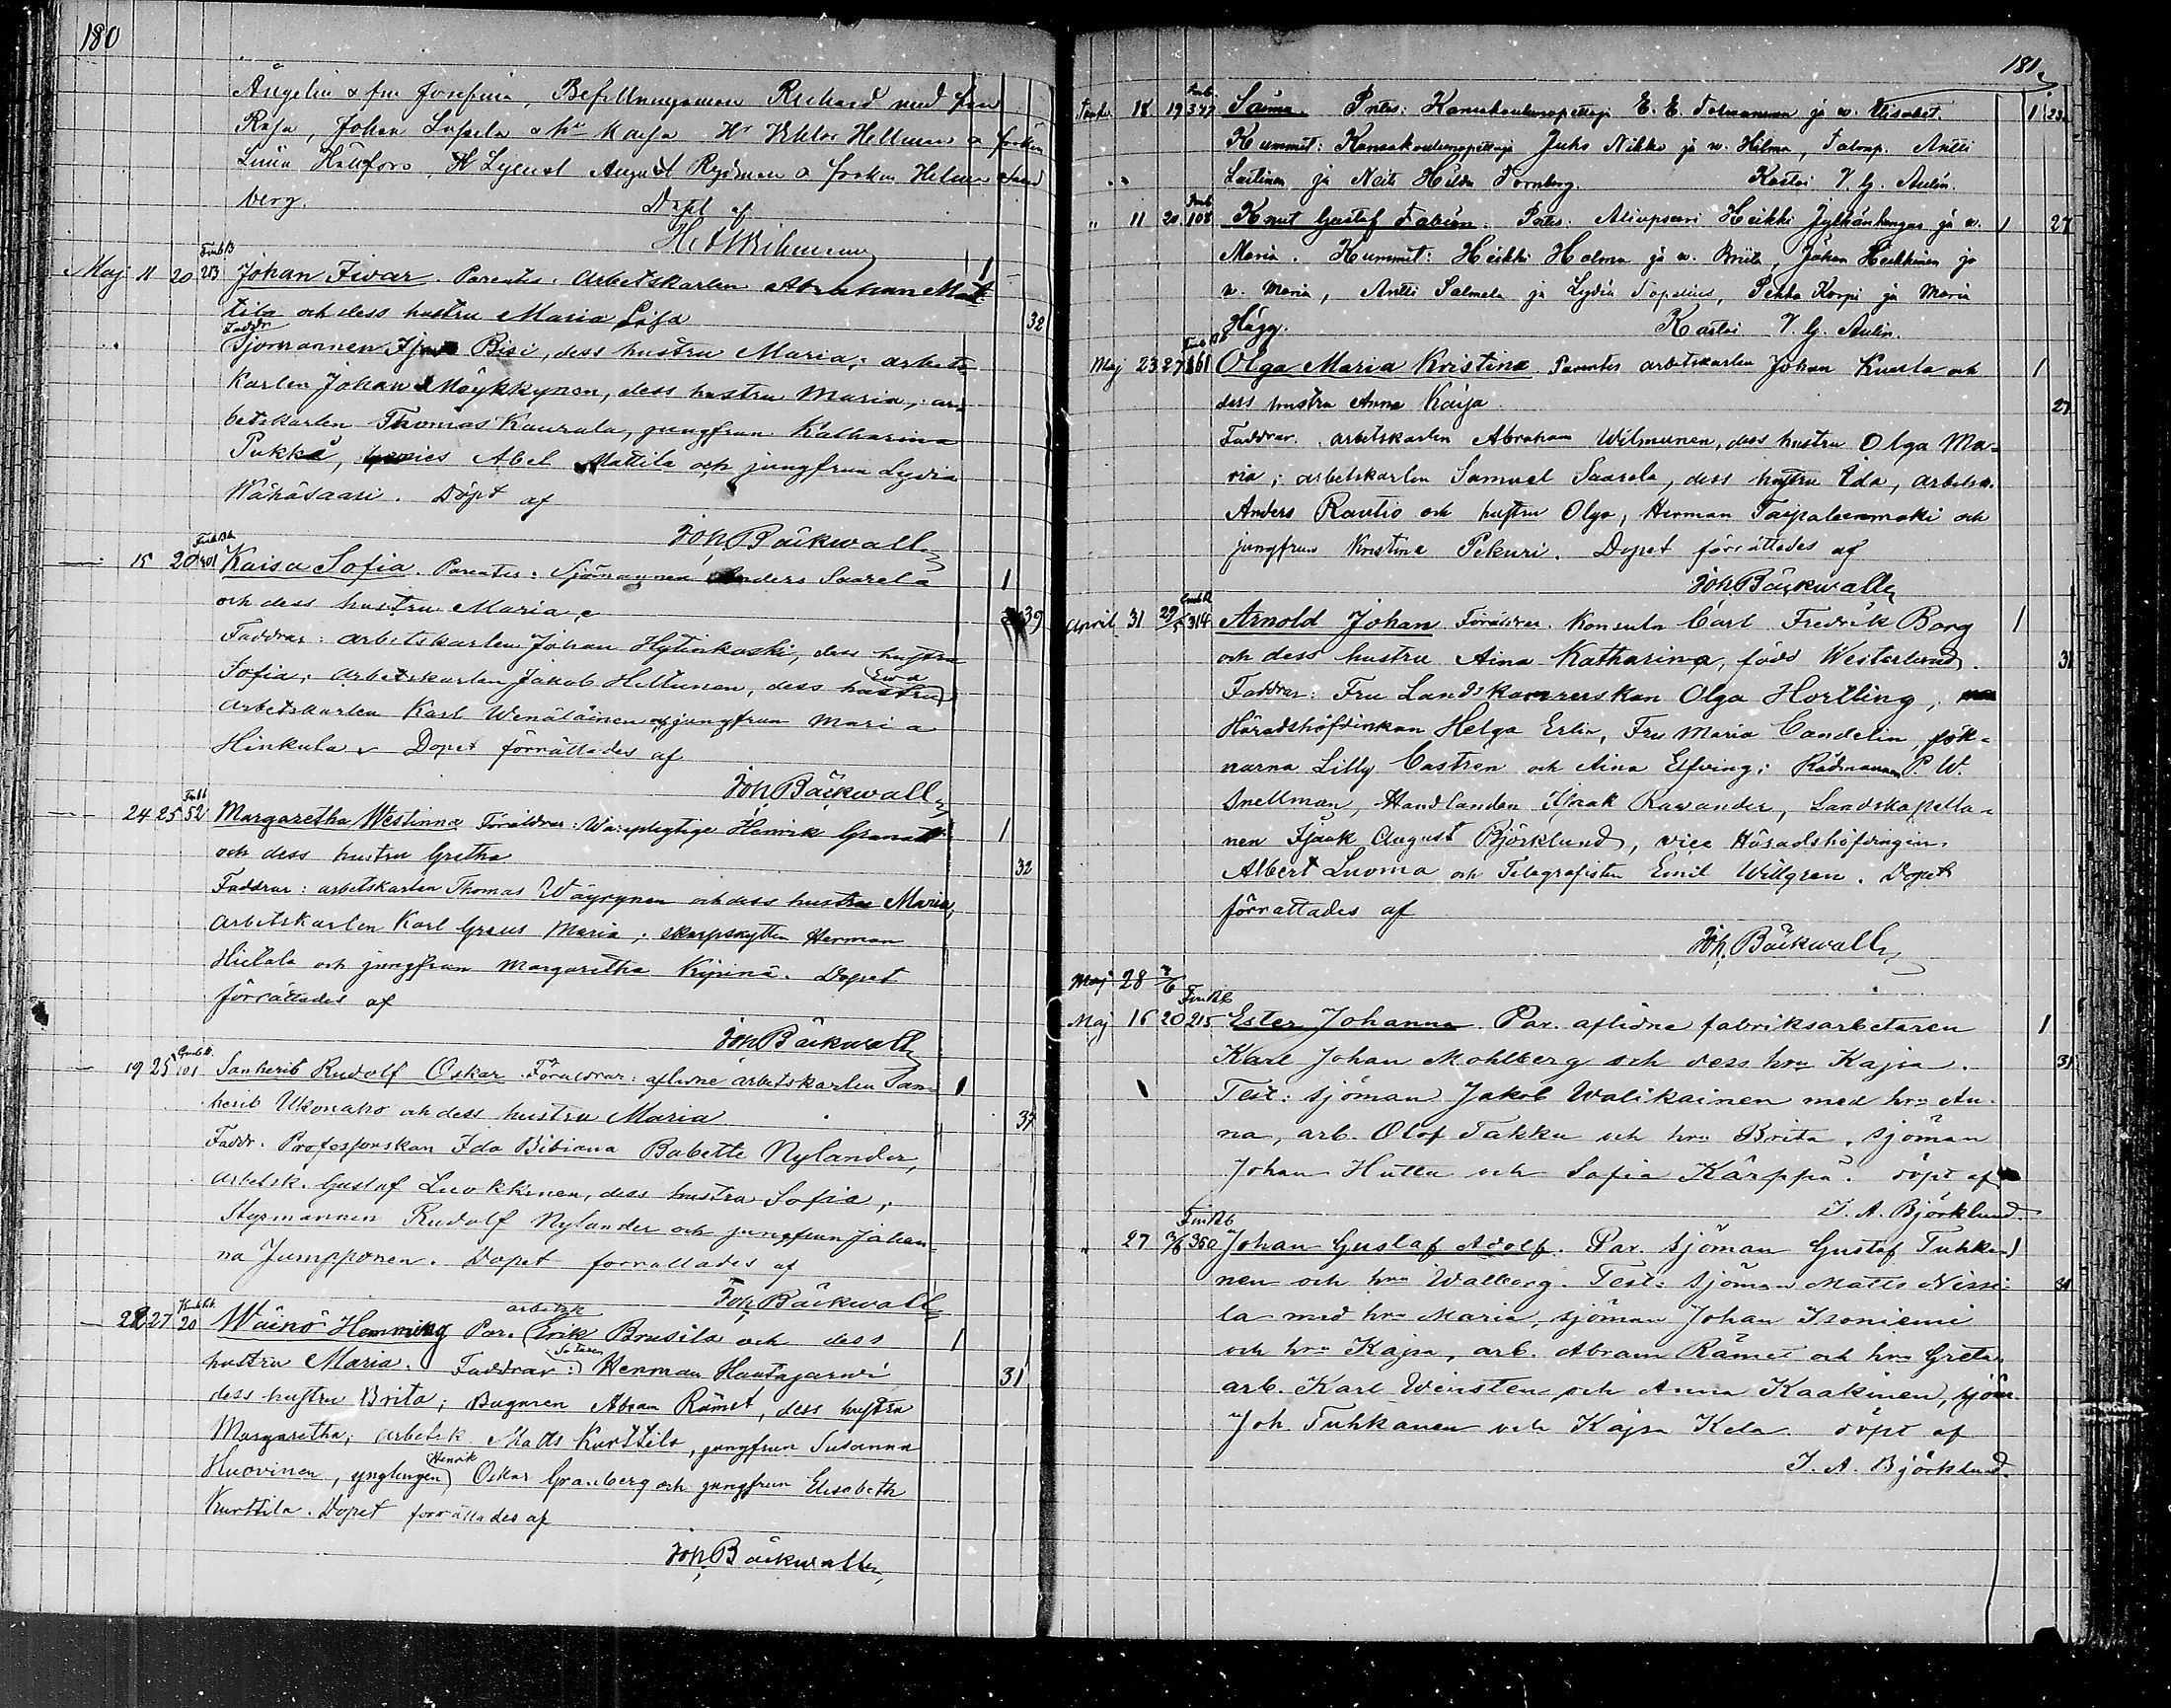 180
Ångelin & fru Josefina, Befallningsman Richard med fru
Rosa, Johan Lassela & hu Kaisa Hr Viktor Hellman & fröken
Hr August & fröken Helena Sund
berg. Döpt af
Maj 11 20 213 Johan Fivar. Parentes: Arbetskarlen Abraham Mat- 1
tila och dess hustru Maria Lisa 32
Faddr
Sjömannen Bisi, dess hustru Maria; arbets-
karlen Johan Möykkynen, dess hustru Maria; ar-
betskarlen Thomas Kaurala, jungfrun Katharina
Pukka, Abel Mattila och jungfrun Lydia
Wähäsaari. Döpt af
Joh Bäckwall
15 20 401 Kaisa Sofia. Parentes: Sjömannen Anders Saarela 1
och dess hustru Maria 39
Faddrar: arbetskarlen Johan Hytinkoski, dess hustru
Sofia; arbetskarlen Jakob Heltunen, dess hustru Ewa
arbetskarlen Karl Wenäläinen och jungfrun Maria
Hinkula. Dopet förrättades af
Joh Bäckwall
24 25 52 Margaretha Westinna Föräldrar: Wärnepligtige Henrik Granat 1
och dess hustru Gretha 32
Faddrar: arbetskarlen Thomas Wäyrynen och dess hustru Maria,
arbetskarlen Karl Graus Maria; skarpskytten Herman
Hietala och jungfrun Margaretha Kipinä. Dopet
förrättades af
Joh Bäckwall
19 25 101 Sanherib Rudolf Oskar. Föräldrar: aflidne arbetskarlen San- 1
herib Ukonaho och dess hustru Maria 37
Faddr. Professorskan Ida Bibiana Babette Nylander,
arbetsk. Gustaf Luokkinen, dess hustru Sofia,
Styrmannen Rudolf Nylander och jungfrun Johan-
na Jumpponen. Dopet förrättades af
Joh Bäckwall
22 27 20 Wäinö Hemming Par. arbetsk Erik Brusila och dess 1
hustru Maria. Faddrar: Herman Hautajärvi 31
dess hustru Brita; Bagaren Abram Rämet, dess hustru
Margaretha; arbetsk Matts Kurttila, jungfrun Susanna
Huovinen, ynglingen Henrik Oskar Granberg och jungfrun Elisabeth
Kurttila. Dopet förrättades af
Joh. Bäckwall
181
18 19 377 Saima. Prntes: Kansakoulunopettaja E. E. Tolmanen ja w. Elisabet. 1 23
Kummit: Kansakoulunopettaja Juho Nikko ja w. Hilma, Talonp. Antti
Lastinen ja Neiti Hilda Tornberg. Kastoi V. G. Aulin.
" 11 20 108 Knut Gustaf Fabian. Prntes: Aliupseeri Heikki Jylhänkangas ja w. 1 27
Maria. Kummit: Heikki Holma ja w. Briita, Johan Heikkinen ja
w. Maria, Antti Salmela ja Lydia Topelius, Pekka Korpi ja Maria
Hägg. Kastoi V. G. Aulin.
Maj 23 27 161 Olga Maria Kristina Parentes arbetskarlen Johan Kuula och 1
dess hustru Anna Kaisa 27
Faddrar. arbetskarlen Abraham Wilmunen, dess hustru Olga Ma-
ria; arbetskarlen Samuel Saarela, dess hustru Ida, arbetsk.
Anders Rautio och hustru Olga, Herman Taipaleenmäki och
jungfrun Kristina Pekuri. Dopet förrättades af
Joh Bäckwall
April 31 29/5 314 Arnold Johan Föräldrar. Konsuln Carl Fredrik Borg 1
och dess hustru Aina Katharina, född Westerlund. 31
Faddrar: Fru Landskamrerskan Olga Hortling,
Häradshöfdinkan Helga Erlin, Fru Maria Candelin, frök-
narna Lilly Castren och Aina Elfving; Rådmannen P. W.
Snellman, Handlanden Isaak Ravander, Landskapella-
nen Isaak August Björklund, vice Häradshöfdingen
Albert Luoma och Telegrafisten Emil Willgren. Dopet
förrättades af
Joh. Bäckwall
Maj 28 /6
Maj 16 20 215 Ester Johanna Par. aflidne fabriksarbetaren 1
Karl Johan Mohlberg och dess hru Kajsa. 31
Test: sjöman Jakob Walikainen med hru An-
na, arb. Olof Takku och hru Brita, sjöman
Johan Hutta och Sofia Kärppä. döpt af
I. A. Björklund.
" 27 3/6 350 Johan Gustaf Adolf. Par. sjöman Gustaf Tuhka-
nen och hru Walborg. Test: sjöman Matts Nissi-
la med hru Maria, sjöman Johan Isoniemi
och hru Kajsa, arb. Abram Rämet och hru Greta,
arb. Karl Winsten och Anna Kaakinen, sjöm.
Joh. Tuhkanen och Kajsa Kela. döpt af
I. A. Björklund.